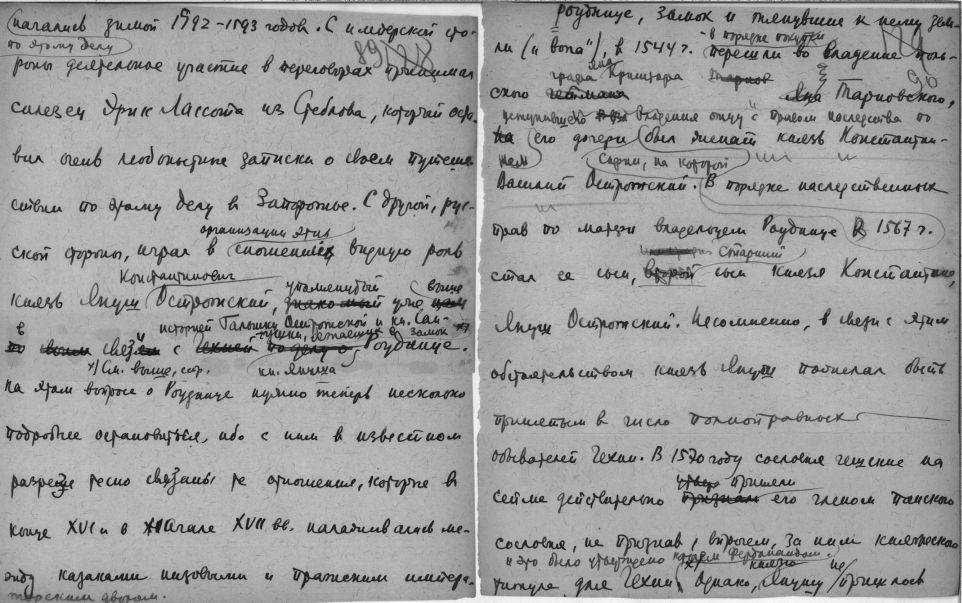 начались зимой 1592-1593 годов. С имперской сто-
по этому делу
роны деятельное участие в переговорах принимал
силезец Эрик Лассота из Стеблова, который оста-
вил очень любопытные записки о своем путеше-
ствии по этому делу в Запорожье. С другой, рус-
организации этих
ской стороны, играл в сношениях видную роль
Константинович упомянутый выше
князь Януш Острожский, уже
историей Гальшки Острожской и кн. Сан-
гушки, бежавших в замок
в связи с Роуднице.
x/ См. выше, стр. кн. Януша
На этом вопросе о Роуднице нужно теперь несколько
подробнее остановиться, ибо с ним в известном
разрезе тесно связаны те отношения, которые в
конце XVI и в начале XVII вв. налаживались ме-
жду казаками низовыми и пражским импера-
торским двором.
89
90
Роуднице, замок и тянувшие к нему зем-
в порядке покупки
ли ("вопа"), в 1544 г. перешли во владение поль-
графа Криштофа
ского Яна Тарновского,
уступавшего владения отцу с правом наследства по
его дочери был женат князь Константин-
Софии, на которой
Василий Острожский. В порядке наследственных
прав по матери владельцем Роуднице в 1567 г.
старший
стал ее сын, сын князя Константина,
Януш Острожский. Несомненно, в связи с этим
обстоятельством князь Януш пожелал быть
принятым в число полноправных
обывателей Чехии. В 1570 году сословия чешские на
приняли
сейме действительно его членом панского
сословия, не признав, впрочем, за ним княжеского
и это было утверждено Фердинандом.
титула для Чехии. Однако, Янушу не пришлось